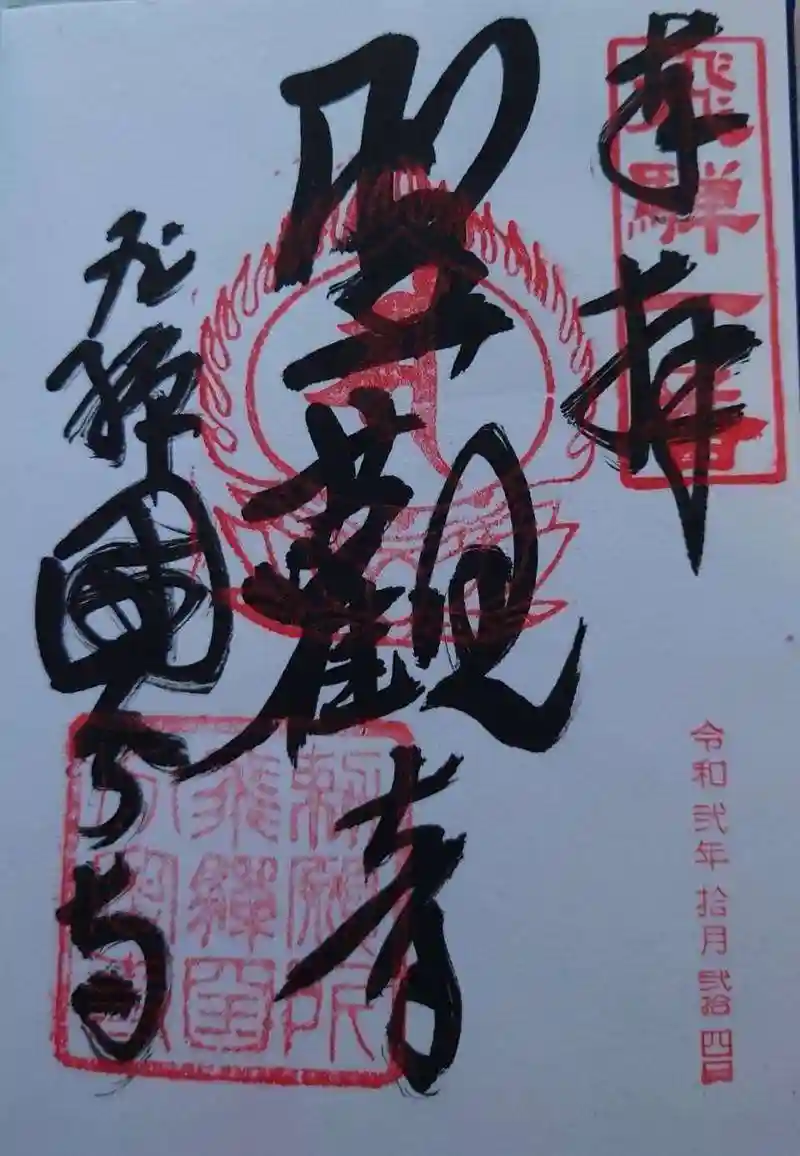 奉拝
飛騨一番
聖觀音
飛騨國分寺
勅願所
飛騨国
令和弐年拾月弐拾四日